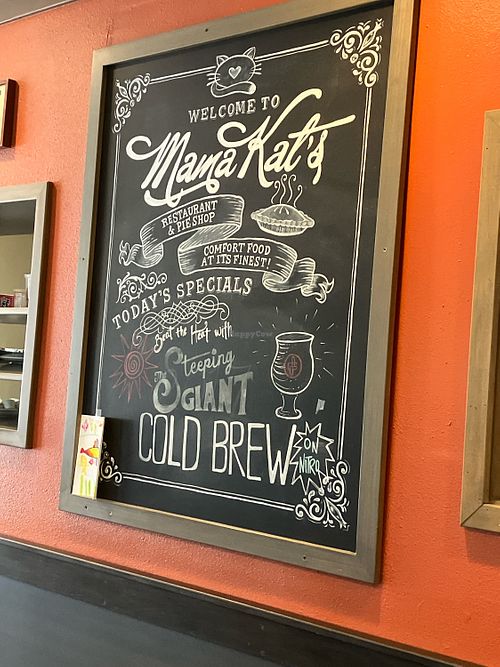 WELCOME TO
Mama Kat's
RESTAURANT
& PIE SHOP
COMFORT FOOD
AT ITS FINEST!
TODAY'S SPECIALS
Beat the Heat with
The Steeping
GIANT
COLD BREW
ON
NITRO
HappyCow